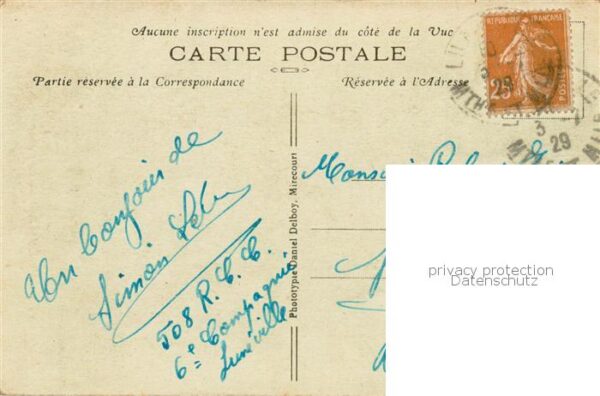 Aucune inscription n'est admise du côté de la Vue
CARTE POSTALE
Partie réservée à la Correspondance
Réservée à l'Adresse
REPUBLIQUE FRANÇAISE
POSTES
25
3
29
Un bonjour de
Simon
508 R. C. C.
6e Compagnie
Lunéville
Phototypie Daniel Delboy, Mirecourt
Monsieur
privacy protection
Datenschutz